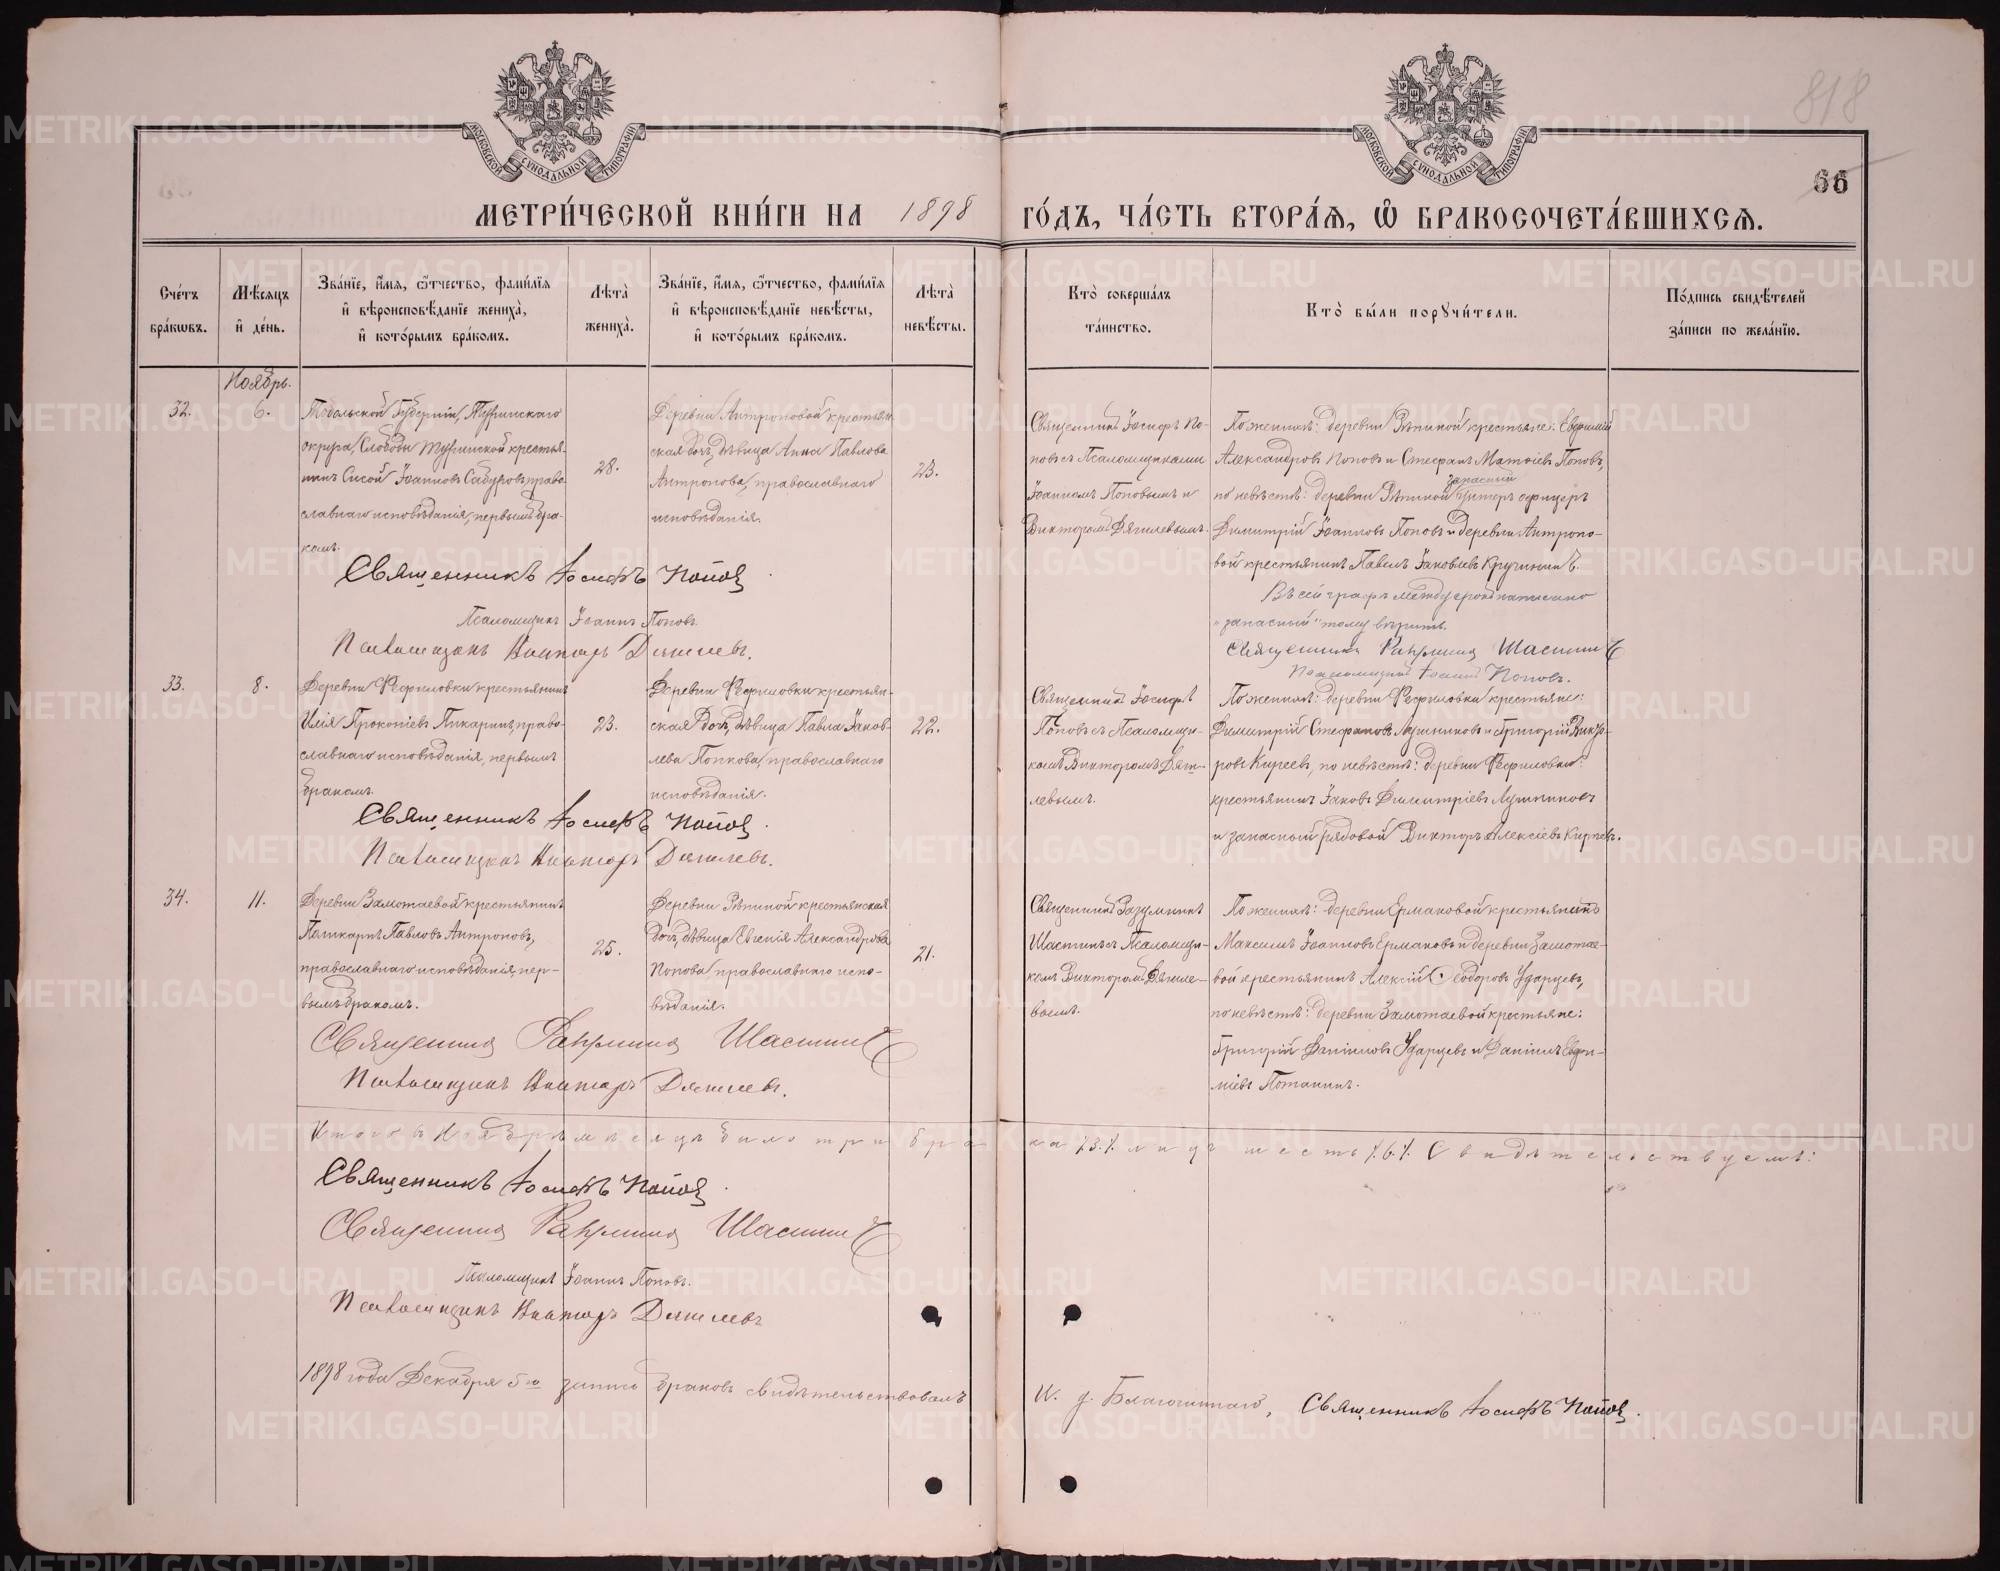 818
66
МОСКОВСКОЙ СѴНОДАЛЬНОЙ ТИПОГРАФІИ
МОСКОВСКОЙ СѴНОДАЛЬНОЙ ТИПОГРАФІИ
МЕТРИ́ЧЕСКОЙ КНИ́ГИ НА 1898 ГО́ДЪ, ЧА́СТЬ ВТОРА́Я, Ѡ БРАКОСОЧЕТА́ВШИХСѦ.
Сче́тъ бра́кѡвъ.
Мѣ́сяцъ и҆ де́нь.
Зва́нїе, и҆́мя, ѻ҆́тчество, фами́лїя
и҆ вѣроисповѣ́данїе жениха̀,
и҆ кото́рымъ бра́комъ.
Лѣта̀ жениха̀.
Зва́нїе, и҆́мя, ѻ҆́тчество, фами́лїя
и҆ вѣроисповѣ́данїе невѣ́сты,
и҆ кото́рымъ бра́комъ.
Лѣта̀ невѣ́сты.
Кто̀ соверша́лъ
та́инство.
Кто̀ бы́ли порꙋчи́тели.
По́дпись свидѣ́телей
за́писи по жела́нїю.
Ноябрь.
32.
6.
Тобольской Губерніи, Туринскаго
округа, Слободы Туринской крестья-
нинъ Сисой Іоанновъ Сабуровъ, право-
славнаго исповѣданія, первымъ бра-
комъ.
28.
Деревни Антроповой крестьян-
ская дочь, дѣвица Анна Павлова
Антропова, православнаго
исповѣданія.
23.
Священникъ Іосифъ По-
повъ съ Псаломщиками
Іоанномъ Поповымъ и
Викторомъ Дягилевымъ.
По женихѣ: деревни Рѣпиной крестьяне: Евфимій
Александровъ Поповъ и Стефанъ Матѳіевъ Поповъ,
запасный
по невѣстѣ: деревни Рѣпиной унтеръ офицеръ
Димитрій Іоанновъ Поповъ и деревни Антропо-
вой крестьянинъ Павелъ Іаковлевъ Кручининъ.
Въ сей графѣ между строкъ написано
"запасный" тому вѣрить.
Священникъ Разумникъ Шастинъ
Псаломщикъ Іоаннъ Поповъ.
Священникъ Іосифъ Поповъ.
Псаломщикъ Іоаннъ Поповъ.
Псаломщикъ Викторъ Дягилевъ.
33.
8.
Деревни Рефтиловки крестьянинъ
Илія Прокопіевъ Пикаринъ, право-
славнаго исповѣданія, первымъ
бракомъ.
23.
крестьян-
ская дочь, дѣвица Павла Іаков-
лева Попкова, православнаго
исповѣданія.
22.
Священникъ Іосифъ
Поповъ съ Псаломщи-
комъ Викторомъ Дяги-
левымъ.
По женихѣ: деревни крестьяне:
Димитрій Стефановъ Лушниковъ и Григорій Викто-
ровъ Киреевъ, по невѣстѣ: деревни
крестьянинъ Іаковъ Димитріевъ Лушниковъ
и запасный рядовой Викторъ Алексіевъ Киреевъ.
Священникъ Іосифъ Поповъ.
Псаломщикъ Викторъ Дягилевъ.
34.
11.
Деревни Замотаевой крестьянинъ
Поликарпъ Павловъ Антроповъ,
православнаго исповѣданія, пер-
вымъ бракомъ.
25.
Деревни Рѣпиной крестьянская
дочь, дѣвица Евгенія Александрова
Попова, православнаго испо-
вѣданія.
21.
Священникъ Разумникъ
Шастинъ съ Псаломщи-
комъ Викторомъ Дягиле-
вымъ.
По женихѣ: деревни Ермаковой крестьянинъ
Максимъ Іоанновъ Ермаковъ и деревни Замотае-
вой крестьянинъ Алексій Ѳеодоровъ Ударцевъ,
по невѣстѣ: деревни Замотаевой крестьяне:
Григорій Даніиловъ Ударцевъ и Даніилъ Евфи-
міевъ Потанинъ.
Священникъ Разумникъ Шастинъ
Псаломщикъ Викторъ Дягилевъ.
Итого въ Ноябрѣ мѣсяцѣ было три бра-
ка /.3./. лицъ шесть /.6./. Свидѣтельствуемъ:
Священникъ Іосифъ Поповъ.
Священникъ Разумникъ Шастинъ
Псаломщикъ Іоаннъ Поповъ.
Псаломщикъ Викторъ Дягилевъ
1898 года Декабря 5го запись браковъ свидѣтельствовалъ
И. д. Благочиннаго, Священникъ Іосифъ Поповъ.
METRIKI.GASO-URAL.RU